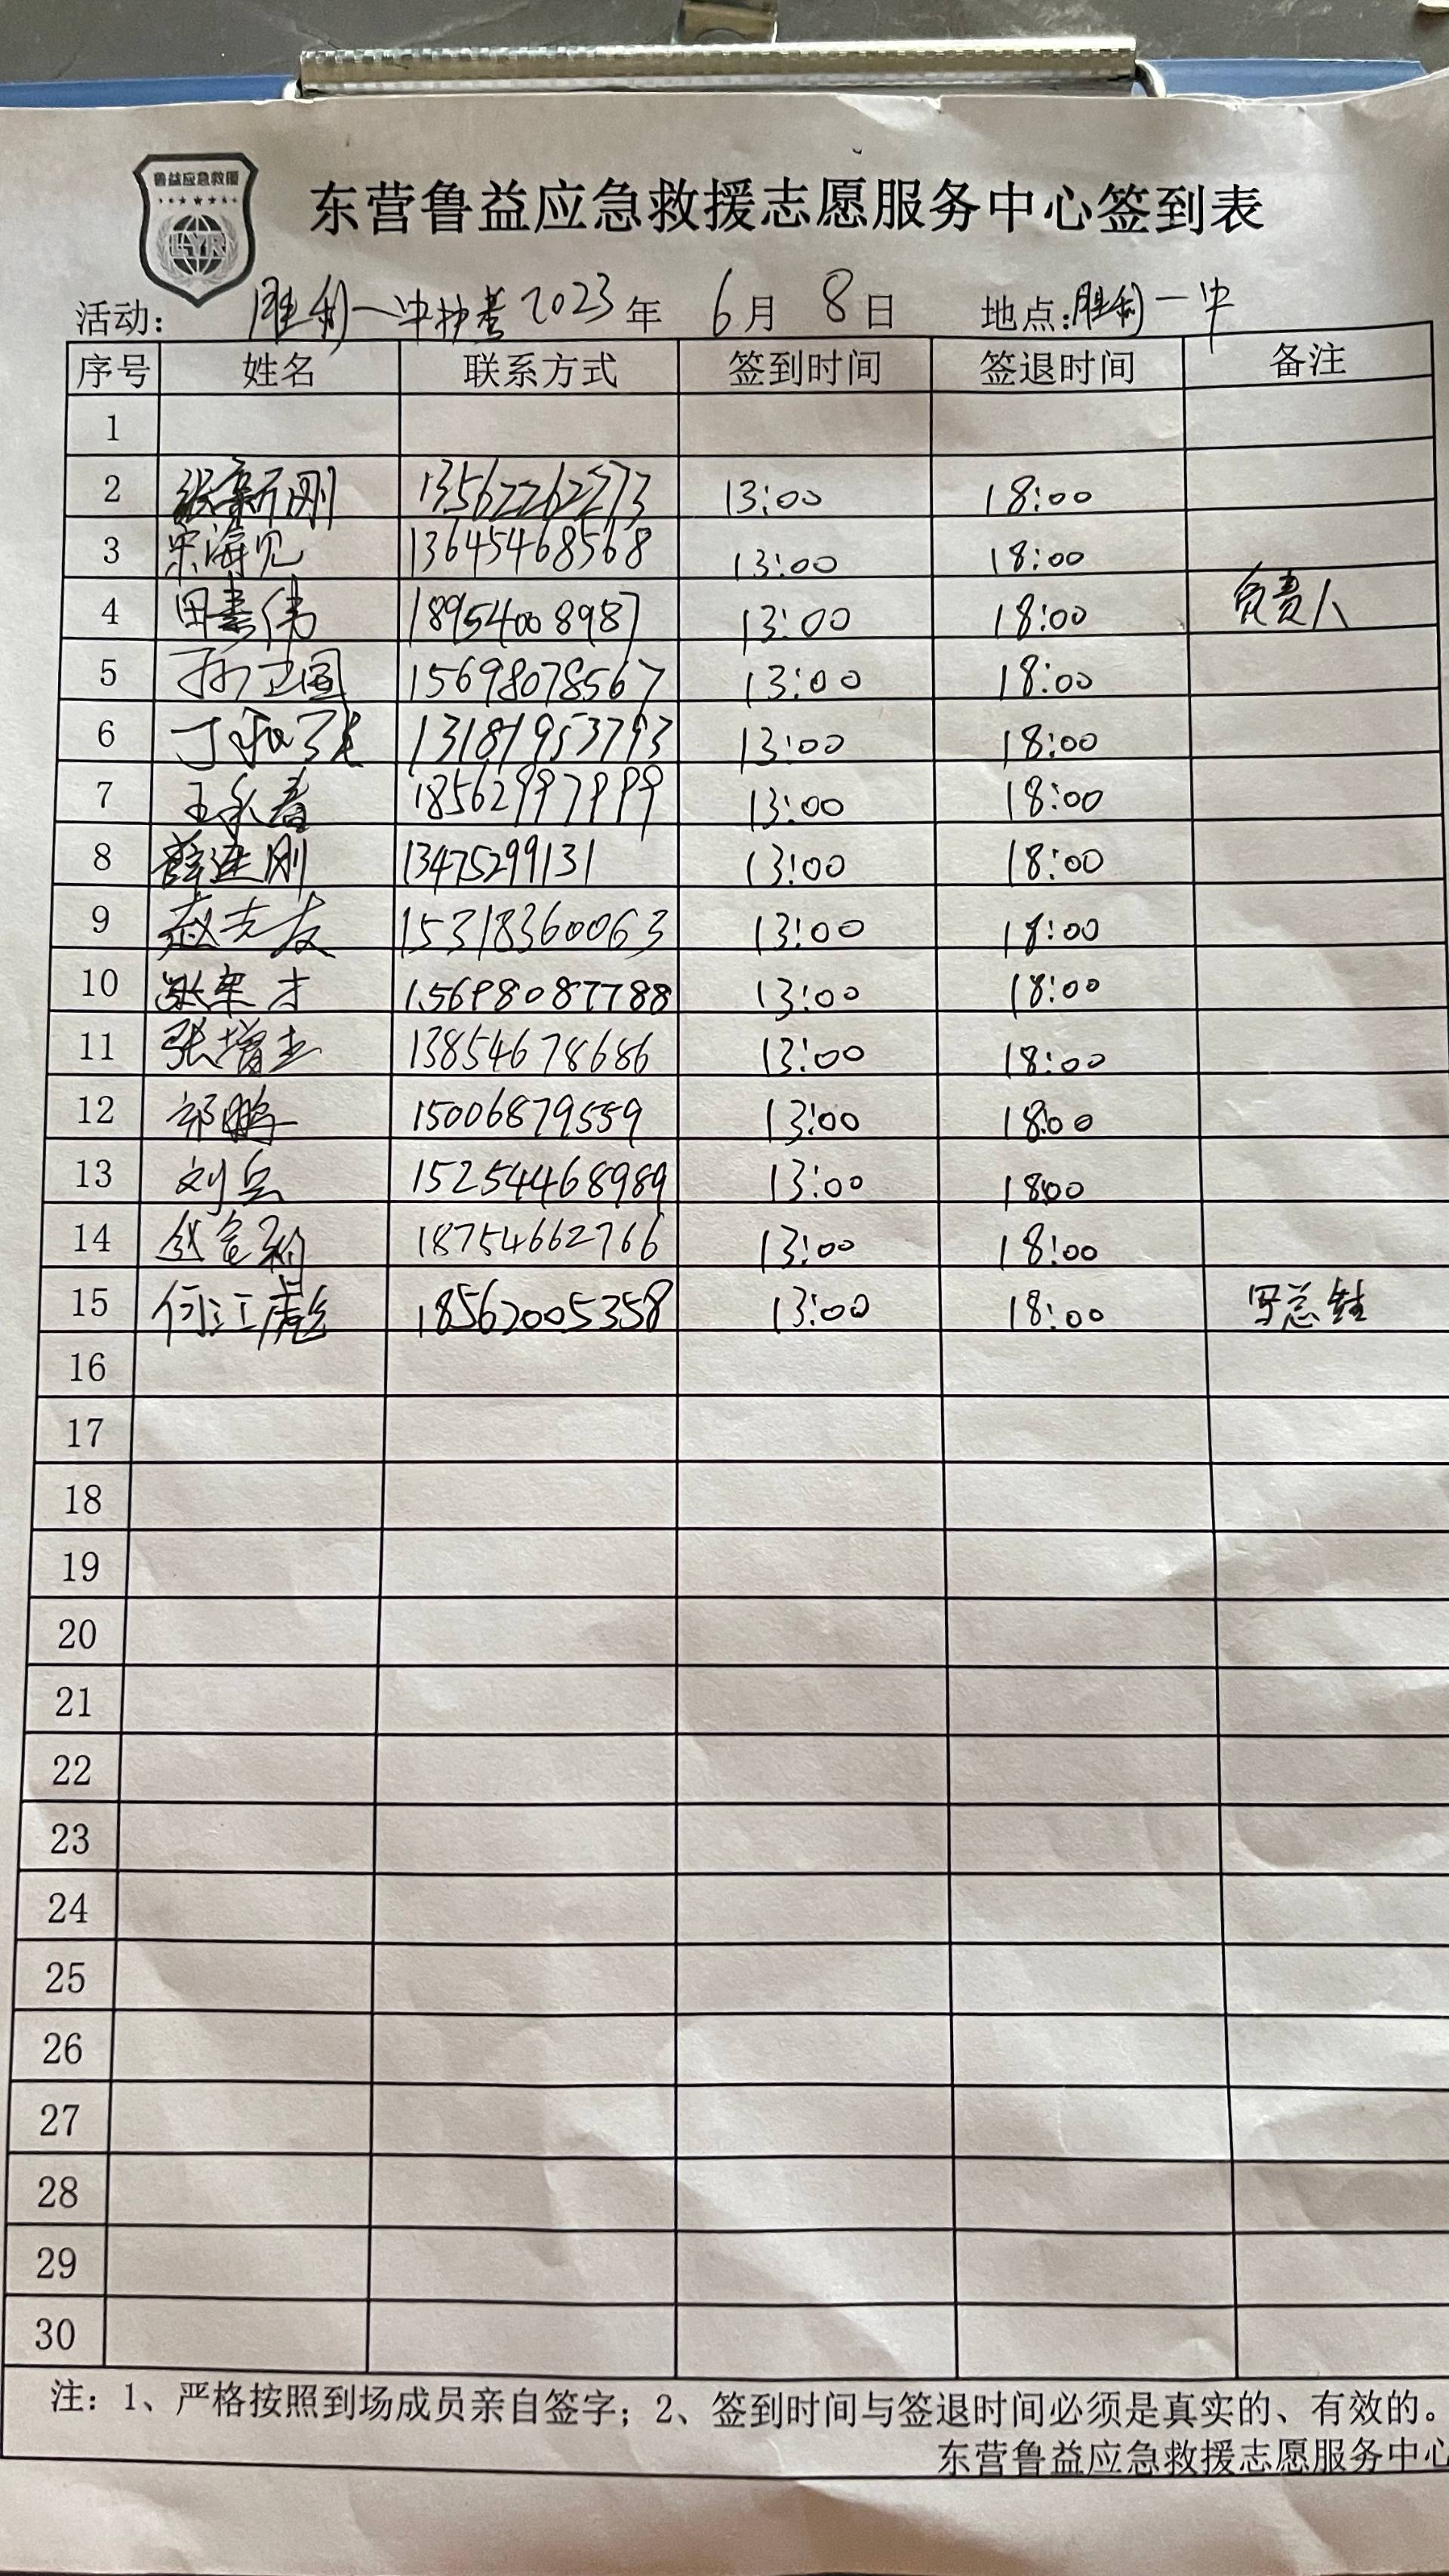 鲁益应急救援
LYR
东营鲁益应急救援志愿服务中心签到表
活动: 胜利一中护考 2023年 6月 8日 地点:胜利一中
序号 姓名 联系方式 签到时间 签退时间 备注
1
2 张新刚 13562262273 13:00 18:00
3 宋海见 13645468568 13:00 18:00
4 田素伟 18954008987 13:00 18:00 负责人
5 孙卫国 15698078567 13:00 18:00
6 13181953793 13:00 18:00
7 王永春 18562997999 13:00 18:00
8 薛连刚 13475299131 13:00 18:00
9 赵志友 15318360063 13:00 18:00
10 15698087788 13:00 18:00
11 张增 13854678686 13:00 18:00
12 祁鹏 15006879559 13:00 18:00
13 刘兵 15254468989 13:00 18:00
14 18754662766 13:00 18:00
15 何江彪 18562005358 13:00 18:00 写总结
16
17
18
19
20
21
22
23
24
25
26
27
28
29
30
注：1、严格按照到场成员亲自签字；2、签到时间与签退时间必须是真实的、有效的。
东营鲁益应急救援志愿服务中心